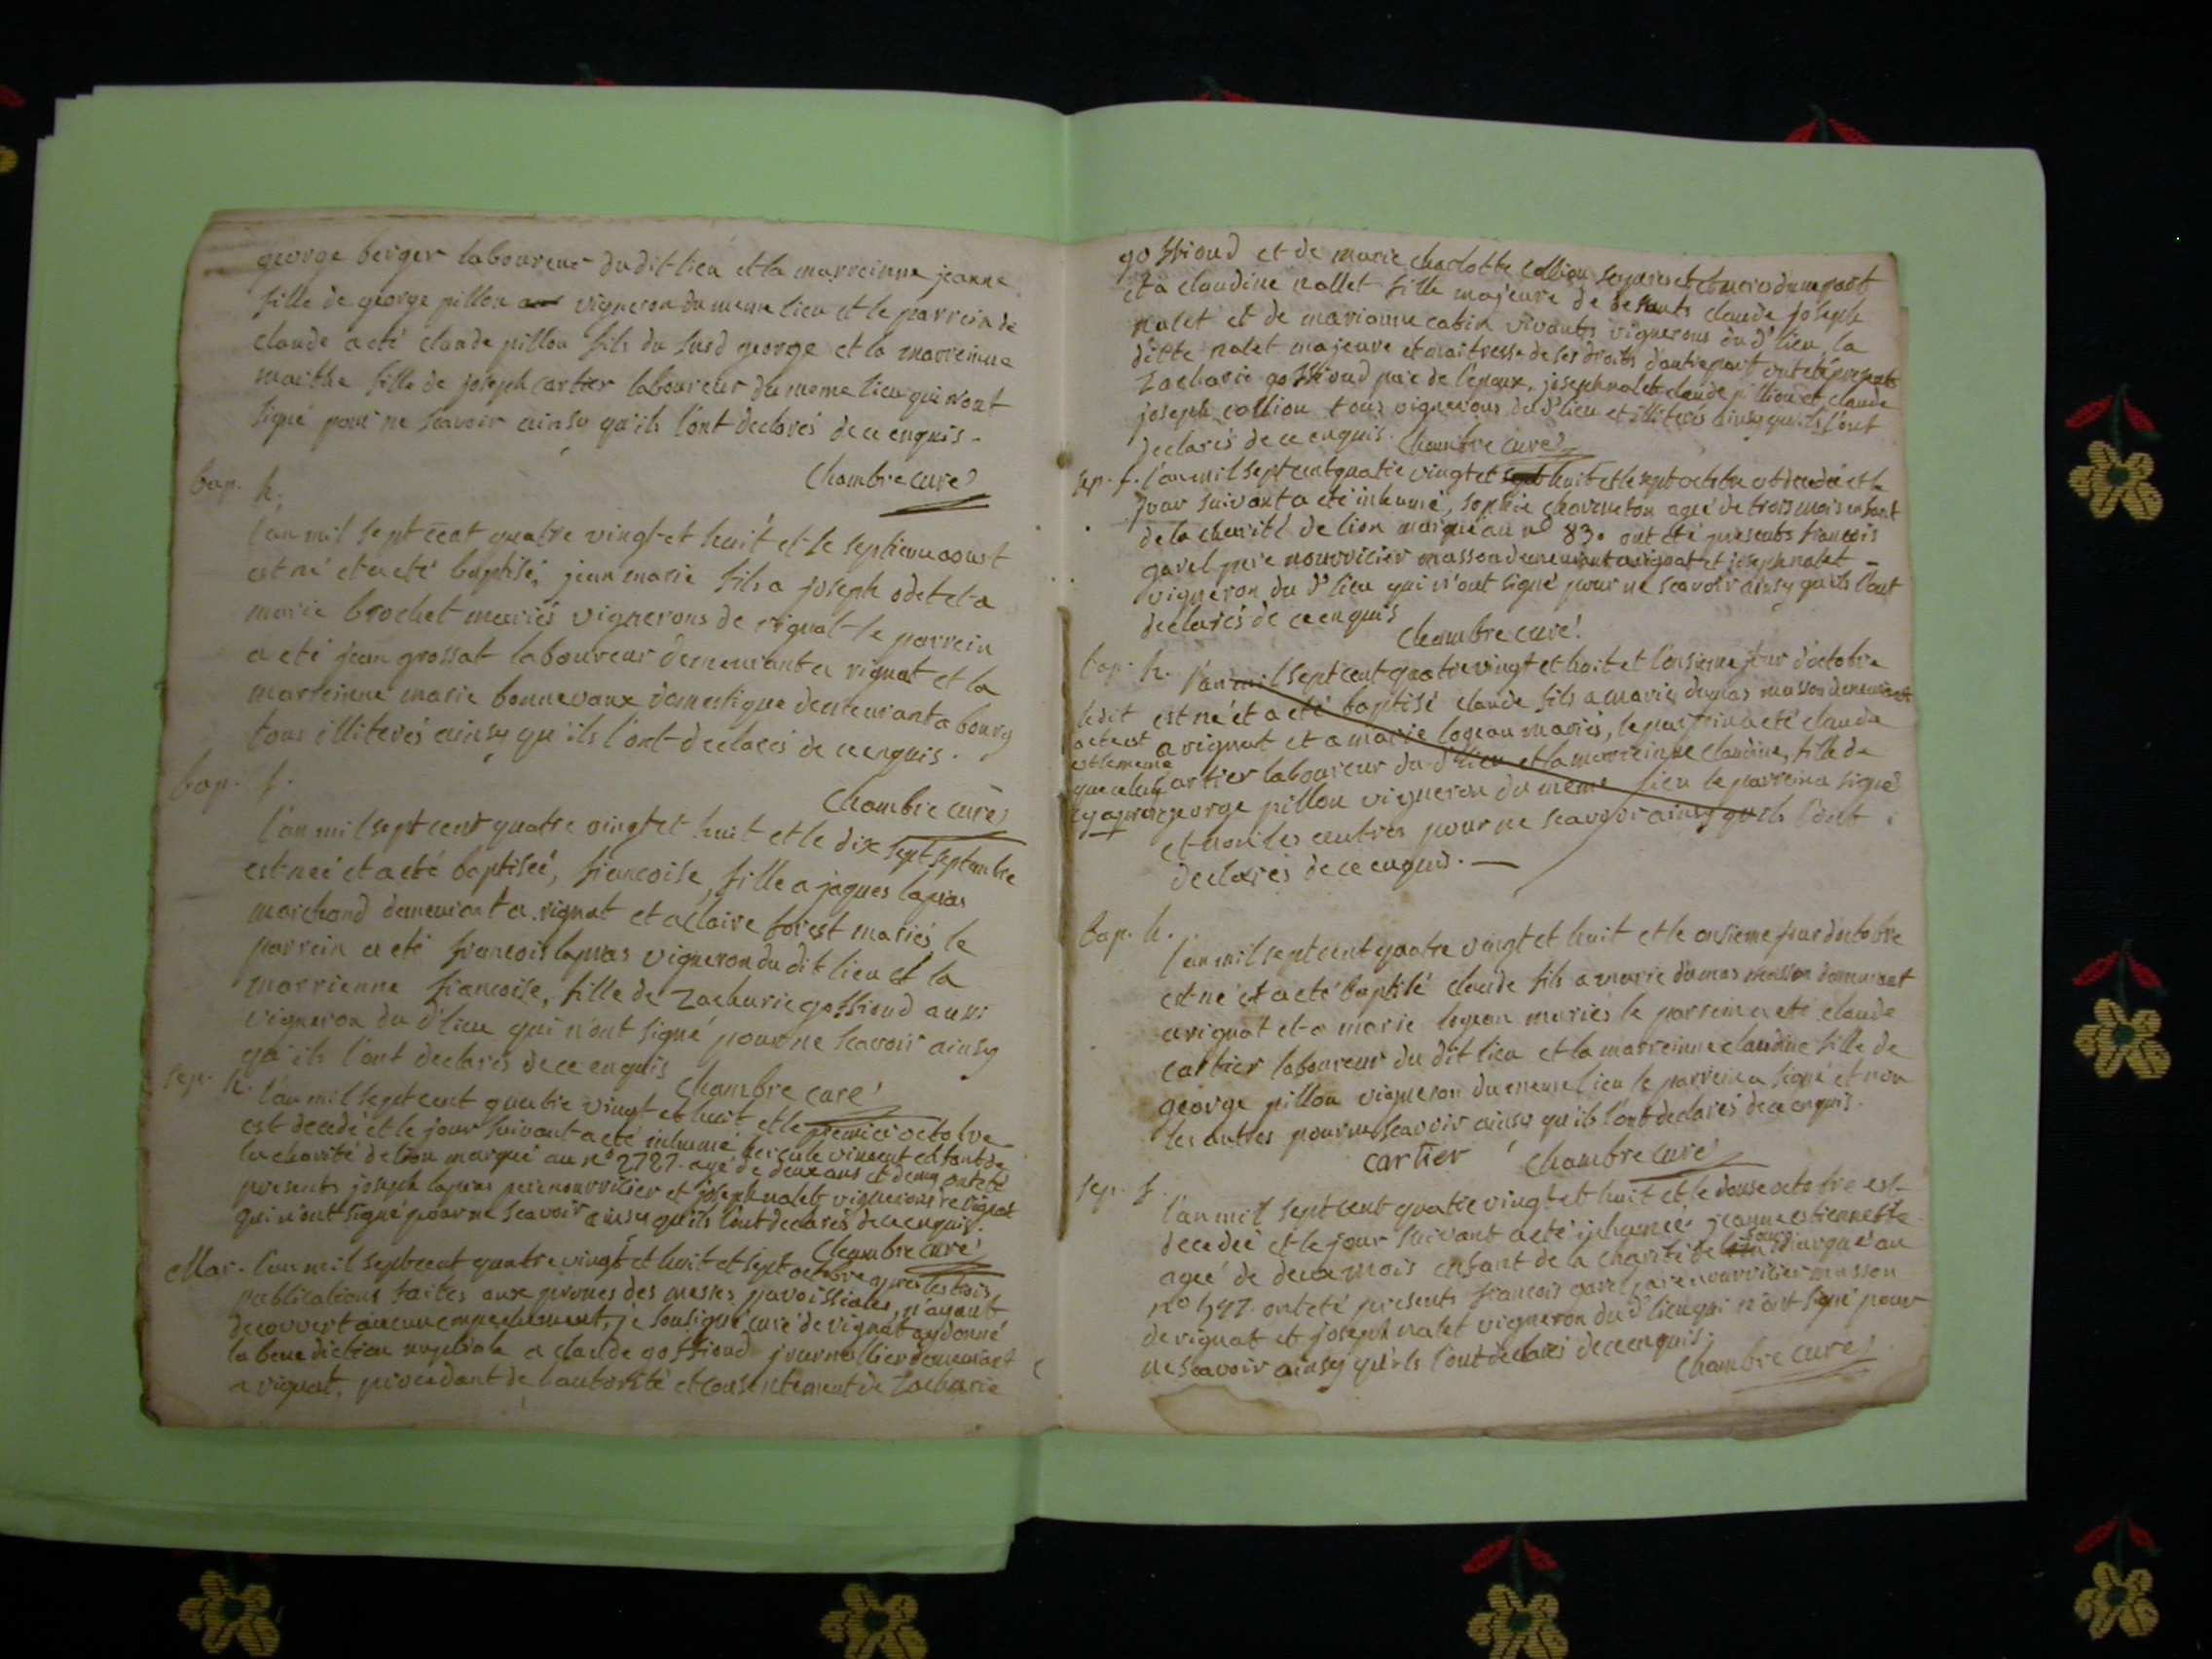 george berger laboureur du dit lieu et la marreinne jeanne
fille de george pillon vigneron du meme lieu et le parrein de
claude a eté claude pillon fils du susd george et la marreinne
marthe fille de joseph cartier laboureur du meme lieu qui n'ont
signé pour ne scavoir ainsy qu'ils l'ont declarés de ce enquis -
Chambre curé
bap. h.
l'an mil sept cent quatre vingt et huit et le septieme aoust
est né et a eté baptisé, jean marie fils a joseph odet et a
marie brochet mariés vignerons de rignat le parrein
a eté jean grossat laboureur demeurant a rignat et la
marreinne marie bonnevaux domestique demeurant a bourg
tous illiterés ainsy qu'ils l'ont declarés de ce enquis.
bap. f.
Chambre curé
l'an mil sept cent quatre vingt et huit et le dix sept septembre
est neé et a eté baptiseé, francoise, fille a jaques lapras
marchand demeurant a rignat et a claire forest mariés le
parrein a eté francois lapras vigneron du dit lieu et la
marrienne francoise, fille de Zacharie gossioud aussi
vigneron du d' lieu qui n'ont signé pour ne scavoir ainsy
qu'ils l'ont declarés de ce enquis
Chambre curé
sep. h. l'an mil sept cent quatre vingt et huit et le premier octobre
est decedé et le jour suivant a eté inhumé hercule vincent enfant de
la charité de lion marqué au n° 2787. agé de deux ans et demy ont eté
presents joseph lapras pere nourricier et joseph nalet vignerons de rignat
qui n'ont signé pour ne scavoir ainsy qu'ils l'ont declarés de ce enquis.
Chambre curé
Mar. l'an mil sept cent quatre vingt et huit et sept octobre apres les trois
publications faites aux prones des messes paroissiales, n'ayant
decouvert aucun empechement, je soussigné curé de rignat ay donné
la benediction nuptiale a claude gossioud journallier demeurant
a rignat, procedant de l'autorité et consentement de Zacharie
gossioud et de marie charlotte collion ses pere et mere d'une part
et a claudine nallet fille majeure de defunts claude joseph
nalet et de marianne cabin vivants vignerons du d' lieu la
ditte nalet majeure et maitresse de ses droits d'autre part ont eté presents
Zacharie gossioud pere de l'epoux, joseph nalet claude pillion et claude
joseph collion tous vignerons du d' lieu et illiterés ainsy qu'ils l'ont
declarés de ce enquis. Chambre curé
sep. f. l'an mil sept cent quatre vingt et huit et le sept octobre est decedé et le
jour suivant a eté inhumé, sophie chaveneton ageé de trois mois enfant
de la charité de lion marqué au n° 830 ont eté presents francois
gavel pere nourricier masson demeurant a rignat et joseph nalet -
vigneron du d' lieu qui n'ont signé pour ne scavoir ainsy qu'ils l'ont
declarés de ce enquis
Chambre curé
bap. h. l'an mil sept cent quatre vingt et huit et l'onsieme jour d'octobre
est né et a eté baptisé claude fils a marie dumas masson demeurant
a rignat et a marie logean mariés, le parrein a eté claude
cartier laboureur du d' lieu et la marreinne claudine, fille de
george pillon vigneron du meme lieu le parrein a signé
et non les autres pour ne scavoir ainsy qu'ils l'ont
declarés de ce enquis. —
le dit
acte est
est le meme
que celuy
cy apres
bap. h.
l'an mil sept cent quatre vingt et huit et le onsieme jour d'octobre
est né et a eté baptisé claude fils a marie dumas masson demeurant
a rignat et a marie logean mariés le parrein a eté claude
cartier laboureur du dit lieu et la marreinne claudine fille de
george pillon vigneron du meme lieu le parrein a signé et non
les autres pour ne scavoir ainsy qu'ils l'ont declarés de ce enquis.
cartier Chambre curé
sep. f.
l'an mil sept cent quatre vingt et huit et le douse octobre est
decedeé et le jour suivant a eté inhumeé jeanne estiennette
ageé de deux mois enfant de la charité de marqué au
n° 547. ont eté presents francois gavel pere nourricier masson
de rignat et joseph nalet vigneron du d' lieu qui n'ont signé pour
ne scavoir ainsy qu'ils l'ont declarés de ce enquis.
Chambre curé